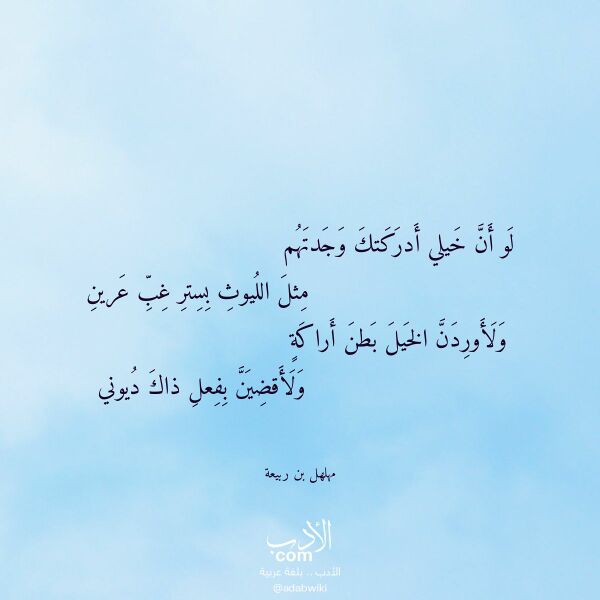 لَو أَنَّ خَيلي أَدرَكَتكَ وَجَدتَهُم
مِثلَ اللُيوثِ بِسِترِ غِبِّ عَرينِ
وَلَأَورِدَنَّ الخَيلَ بَطنَ أَراكَةٍ
وَلَأَقضِيَنَّ بِفِعلِ ذاكَ دُيوني
مهلهل بن ربيعة
الأدب
com
الأدب .. بلغة عربية
@adabwiki